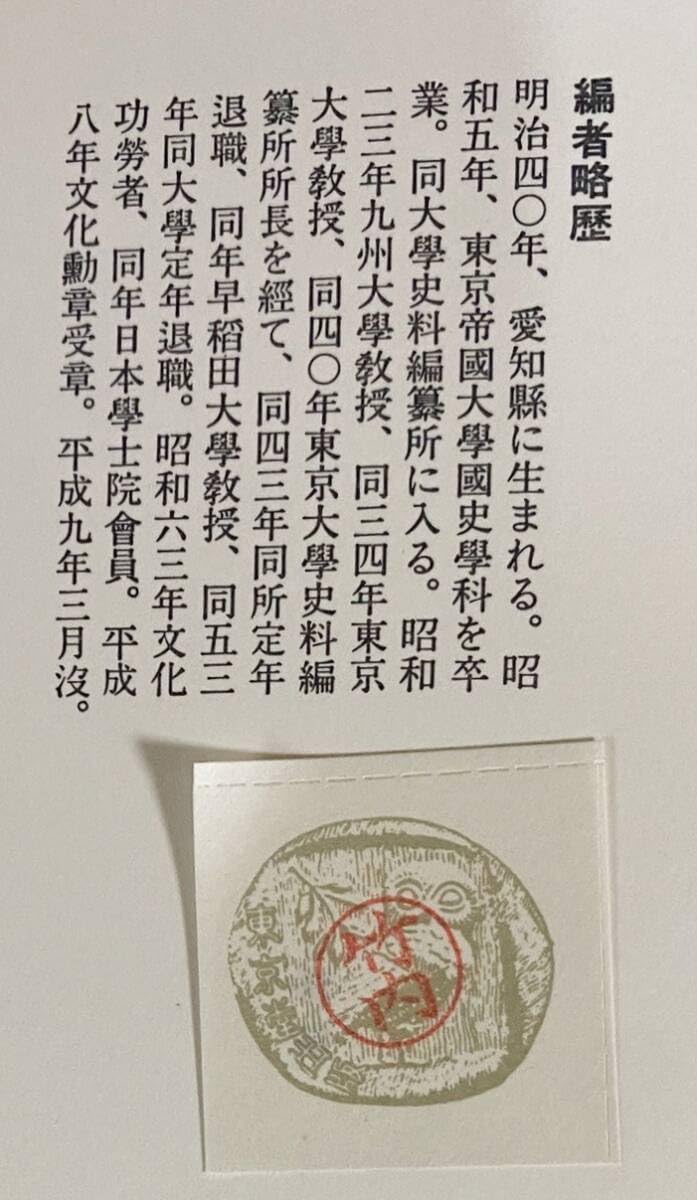 編者略歴
明治四〇年、愛知縣に生まれる。昭
和五年、東京帝國大學國史學科を卒
業。同大學史料編纂所に入る。昭和
二三年九州大學敎授、同三四年東京
大學敎授、同四〇年東京大學史料編
纂所所長を經て、同四三年同所定年
退職、同年早稻田大學敎授、同五三
年同大學定年退職。昭和六三年文化
功勞者、同年日本學士院會員。平成
八年文化勳章受章。平成九年三月沒。
竹内
東京堂